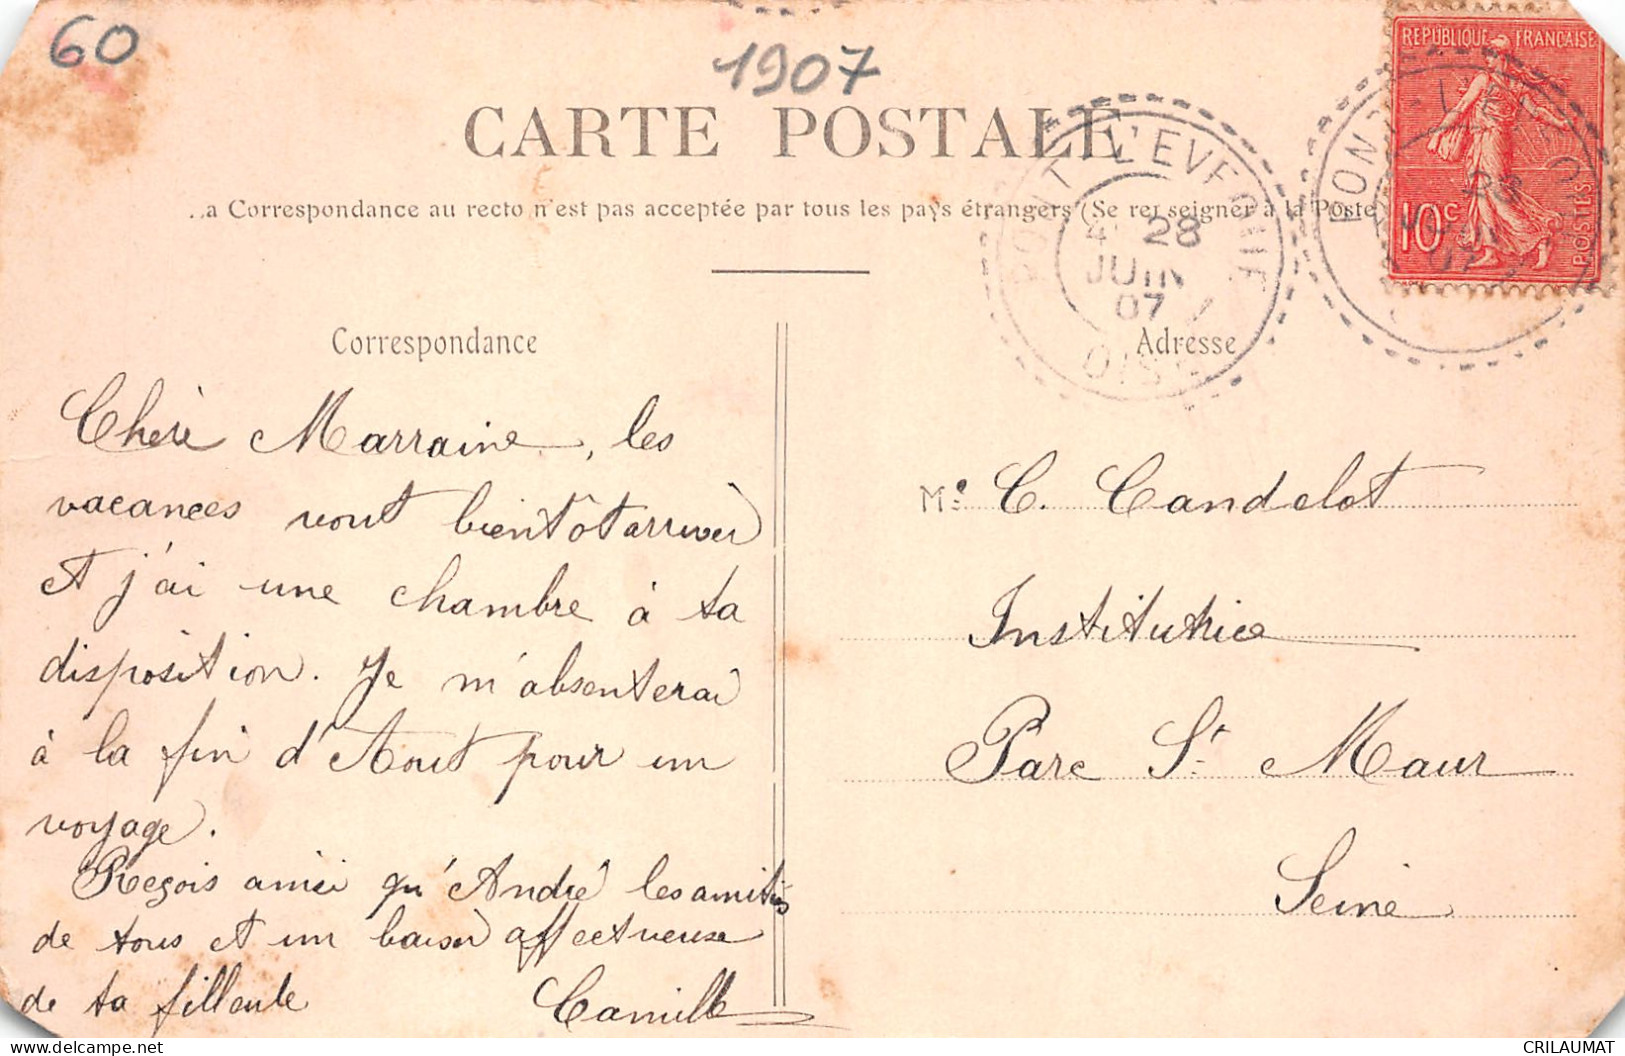 60
1907
CARTE POSTALE
a Correspondance au recto n'est pas acceptée par tous les pays étrangers (Se renseigner à la Poste
REPUBLIQUE FRANÇAISE
10c
POSTES
PONT-L'EVEQUE
28
JUIN
07
OISE
Correspondance
Adresse
Chère Marraine, les
vacances vont bientôt arriver
et j'ai une chambre à ta
disposition. Je m'absenterai
à la fin d'Aout pour un
voyage.
Reçois ainsi qu'André les amitiés
de tous et un baiser affectueuse
de ta filleule Camille
C. Candelot
Institutrice
Parc St Maur
Seine
CRILAUMAT
delcampe.net